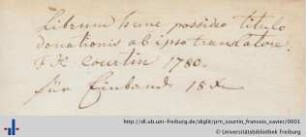 Librum hunc possideo titulo
donationis ab ipso translatore.
F. X. Courtin 1780.
für Einband 18 x
http://dl.ub.uni-freiburg.de/diglit/prm_courtin_francois_xavier/0001
© Universitätsbibliothek Freiburg